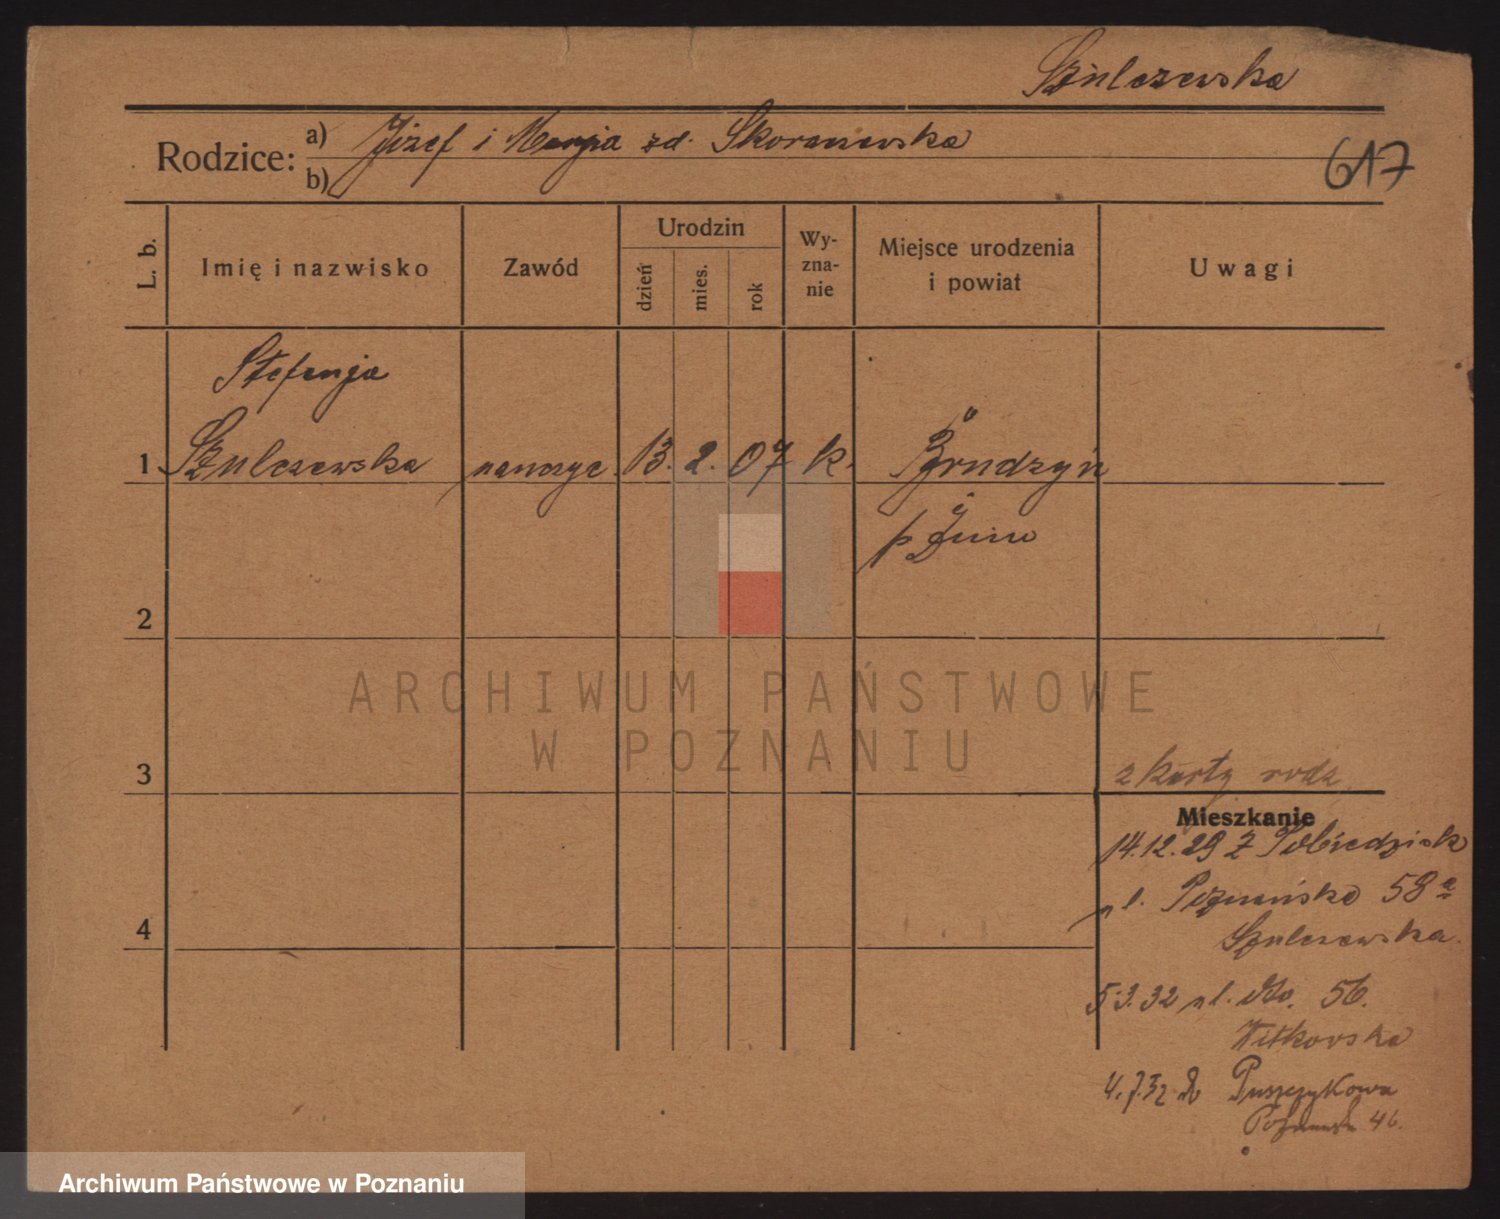 Szulczewska
Rodzice: a) Józef i Marja zd. Skoraszewska
b)
617
L. b.
Imię i nazwisko
Zawód
Urodzin
dzień
mies.
rok
Wy-
zna-
nie
Miejsce urodzenia
i powiat
Uwagi
Stefanja
1 Szulczewska nauczyc. 13. 2. 07 k. Brudzyń
p Żnin
2
ARCHIWUM PAŃSTWOWE
W POZNANIU
3
z karty rodz.
Mieszkanie
14.12.29 z Pobiedzisk
ul. Poznańska 58a
Szulczewska.
4
5.3.32 ul. dto. 56.
Witkowska
4.7.32 do Puszczykowa
Poznańska 46.
Archiwum Państwowe w Poznaniu